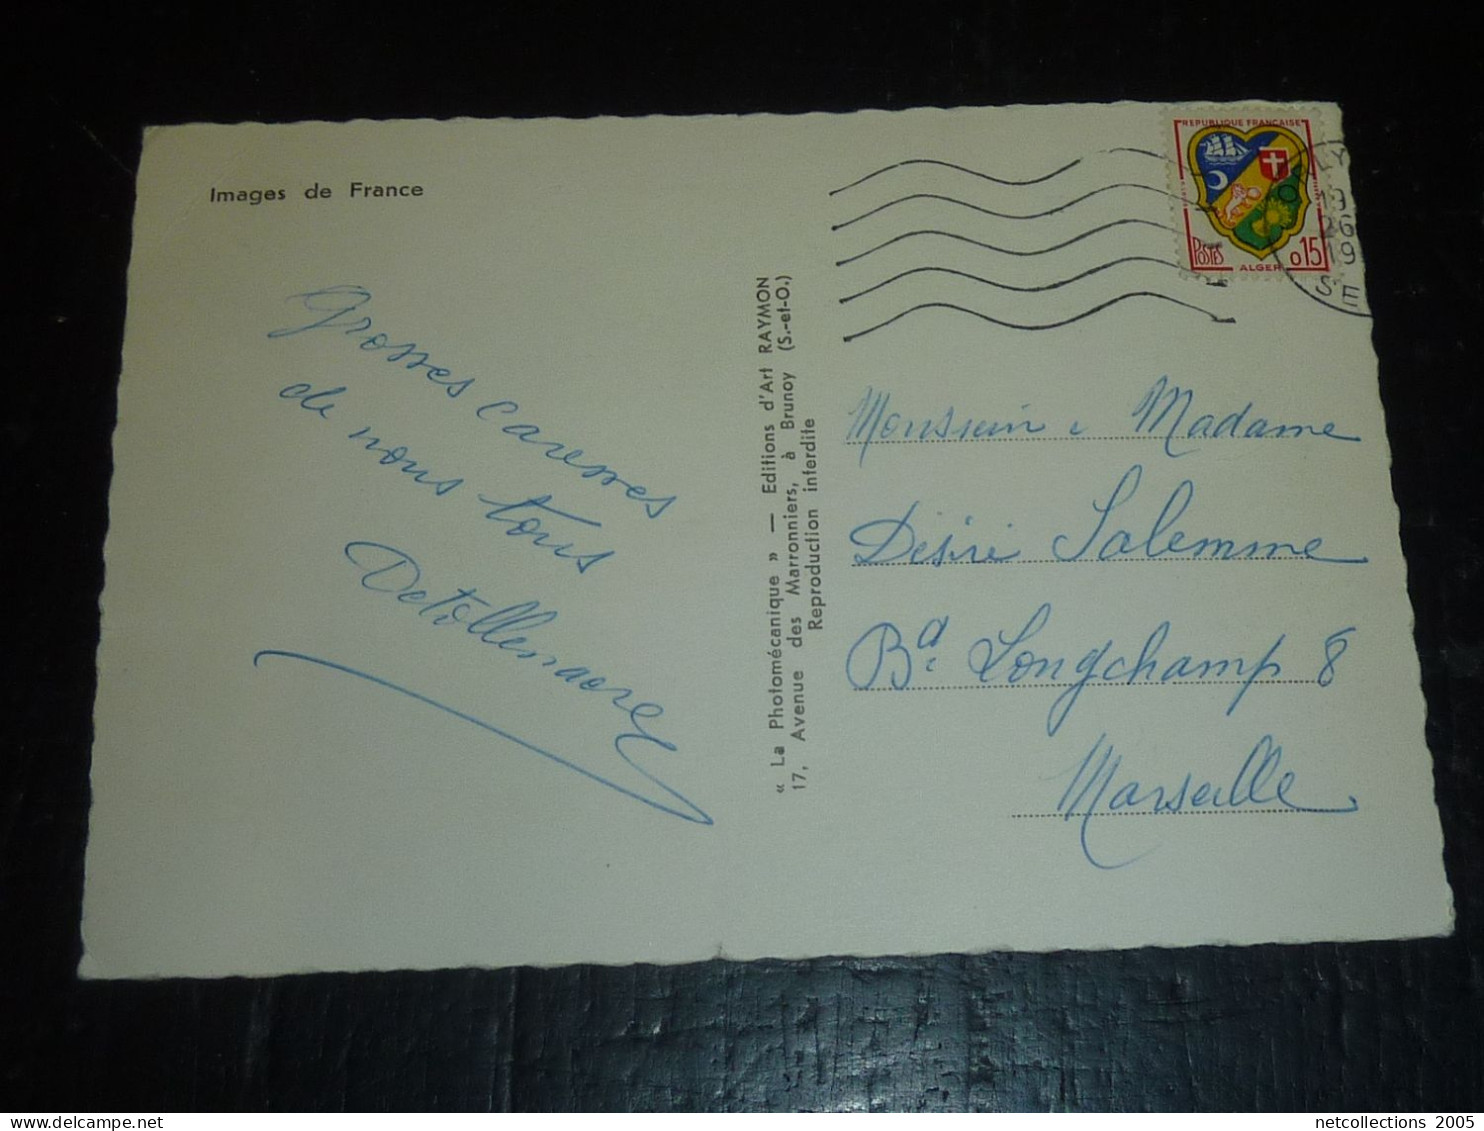 Images de France
Grosses caresses
de nous tous
Detollenaere
« La Photomécanique » — Editions d'Art RAYMON
17, Avenue des Marronniers, à Brunoy (S.-et-O.)
Reproduction interdite
REPUBLIQUE FRANÇAISE
POSTES
ALGER
0,15
19
26
19
S E
Monsieur e Madame
Désiré Salemme
Bd. Longchamp 8
Marseille
netcollections 2005